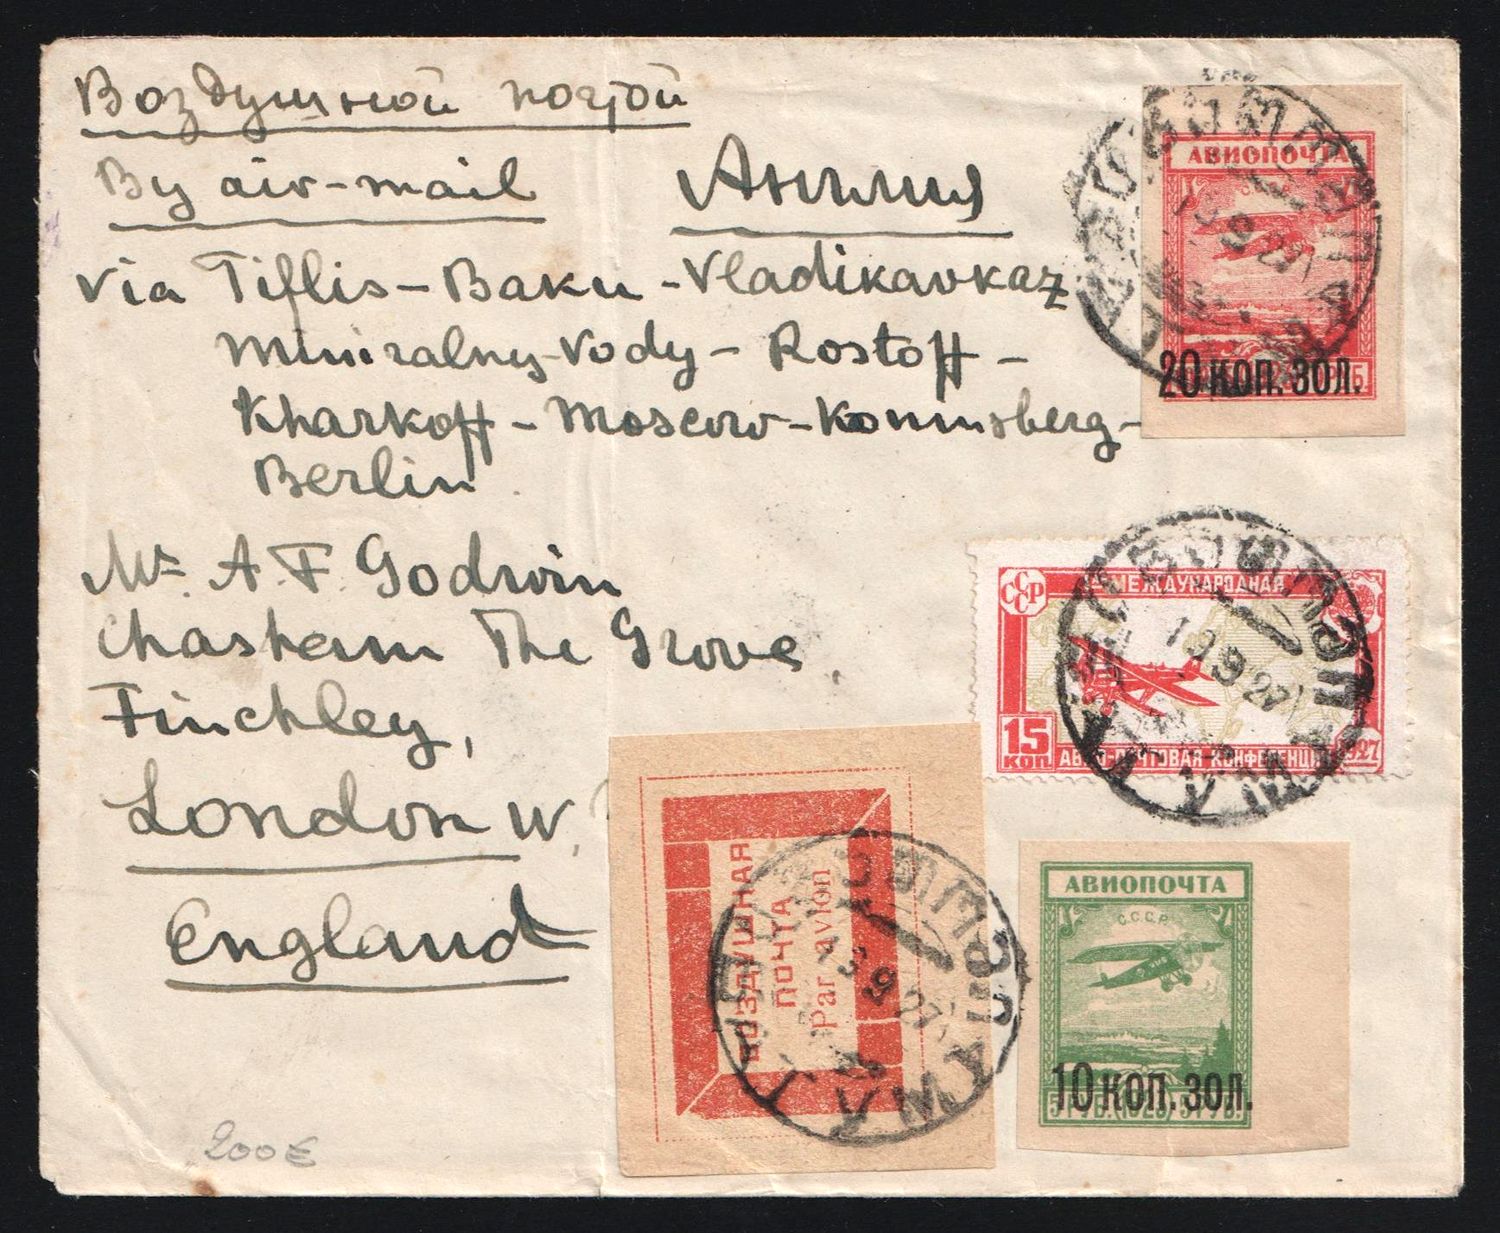 Воздушной почтой
By air-mail
Англия
via Tiflis – Baku – Vladikavkaz
Mineralny-Vody – Rostoff –
Kharkoff – Moscow – Konninsberg –
Berlin
Mr. A F Godwin
Chasteam The Grove,
Finchley,
London W
England
200€
АВИОПОЧТА
20 КОП. ЗОЛ.
19 9 27
СССР
МЕЖДУНАРОДНАЯ
15
КОП
АВИО-ПОЧТОВАЯ-КОНФЕРЕНЦИЯ
1927
19 9 27
ВОЗДУШНАЯ
ПОЧТА
Par avion
19 9 27
АВИОПОЧТА
С.С.С.Р.
10 КОП. ЗОЛ.
5 РУБ. (1923) 5 РУБ.